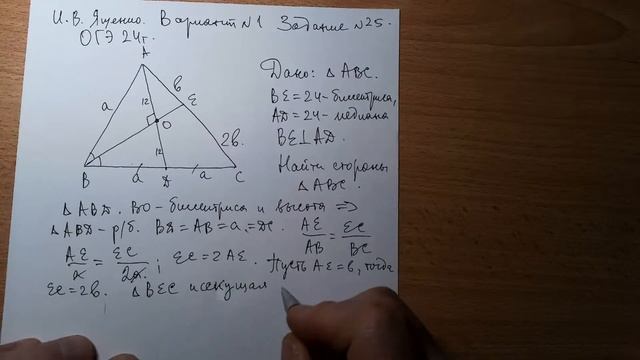 И. В. Ященко. Вариант №1 Задание №25.
ОГЭ 24г.
A
a
12
b
E
O
12
2b.
B
a
D
a
C
Дано: △ABC.
BE=24-биссектриса,
AD=24-медиана
BE⊥AD.
Найти стороны
△ABC.
△ABD. BO-биссектриса и высота ⇒
△ABD-р/б. BD=AB=a=DC. AE/AB=EC/BC
AE/a=EC/2a; EC=2AE. Пусть AE=b, тогда
EC=2b. △BEC и секущая